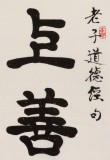 老子道德經句
与善